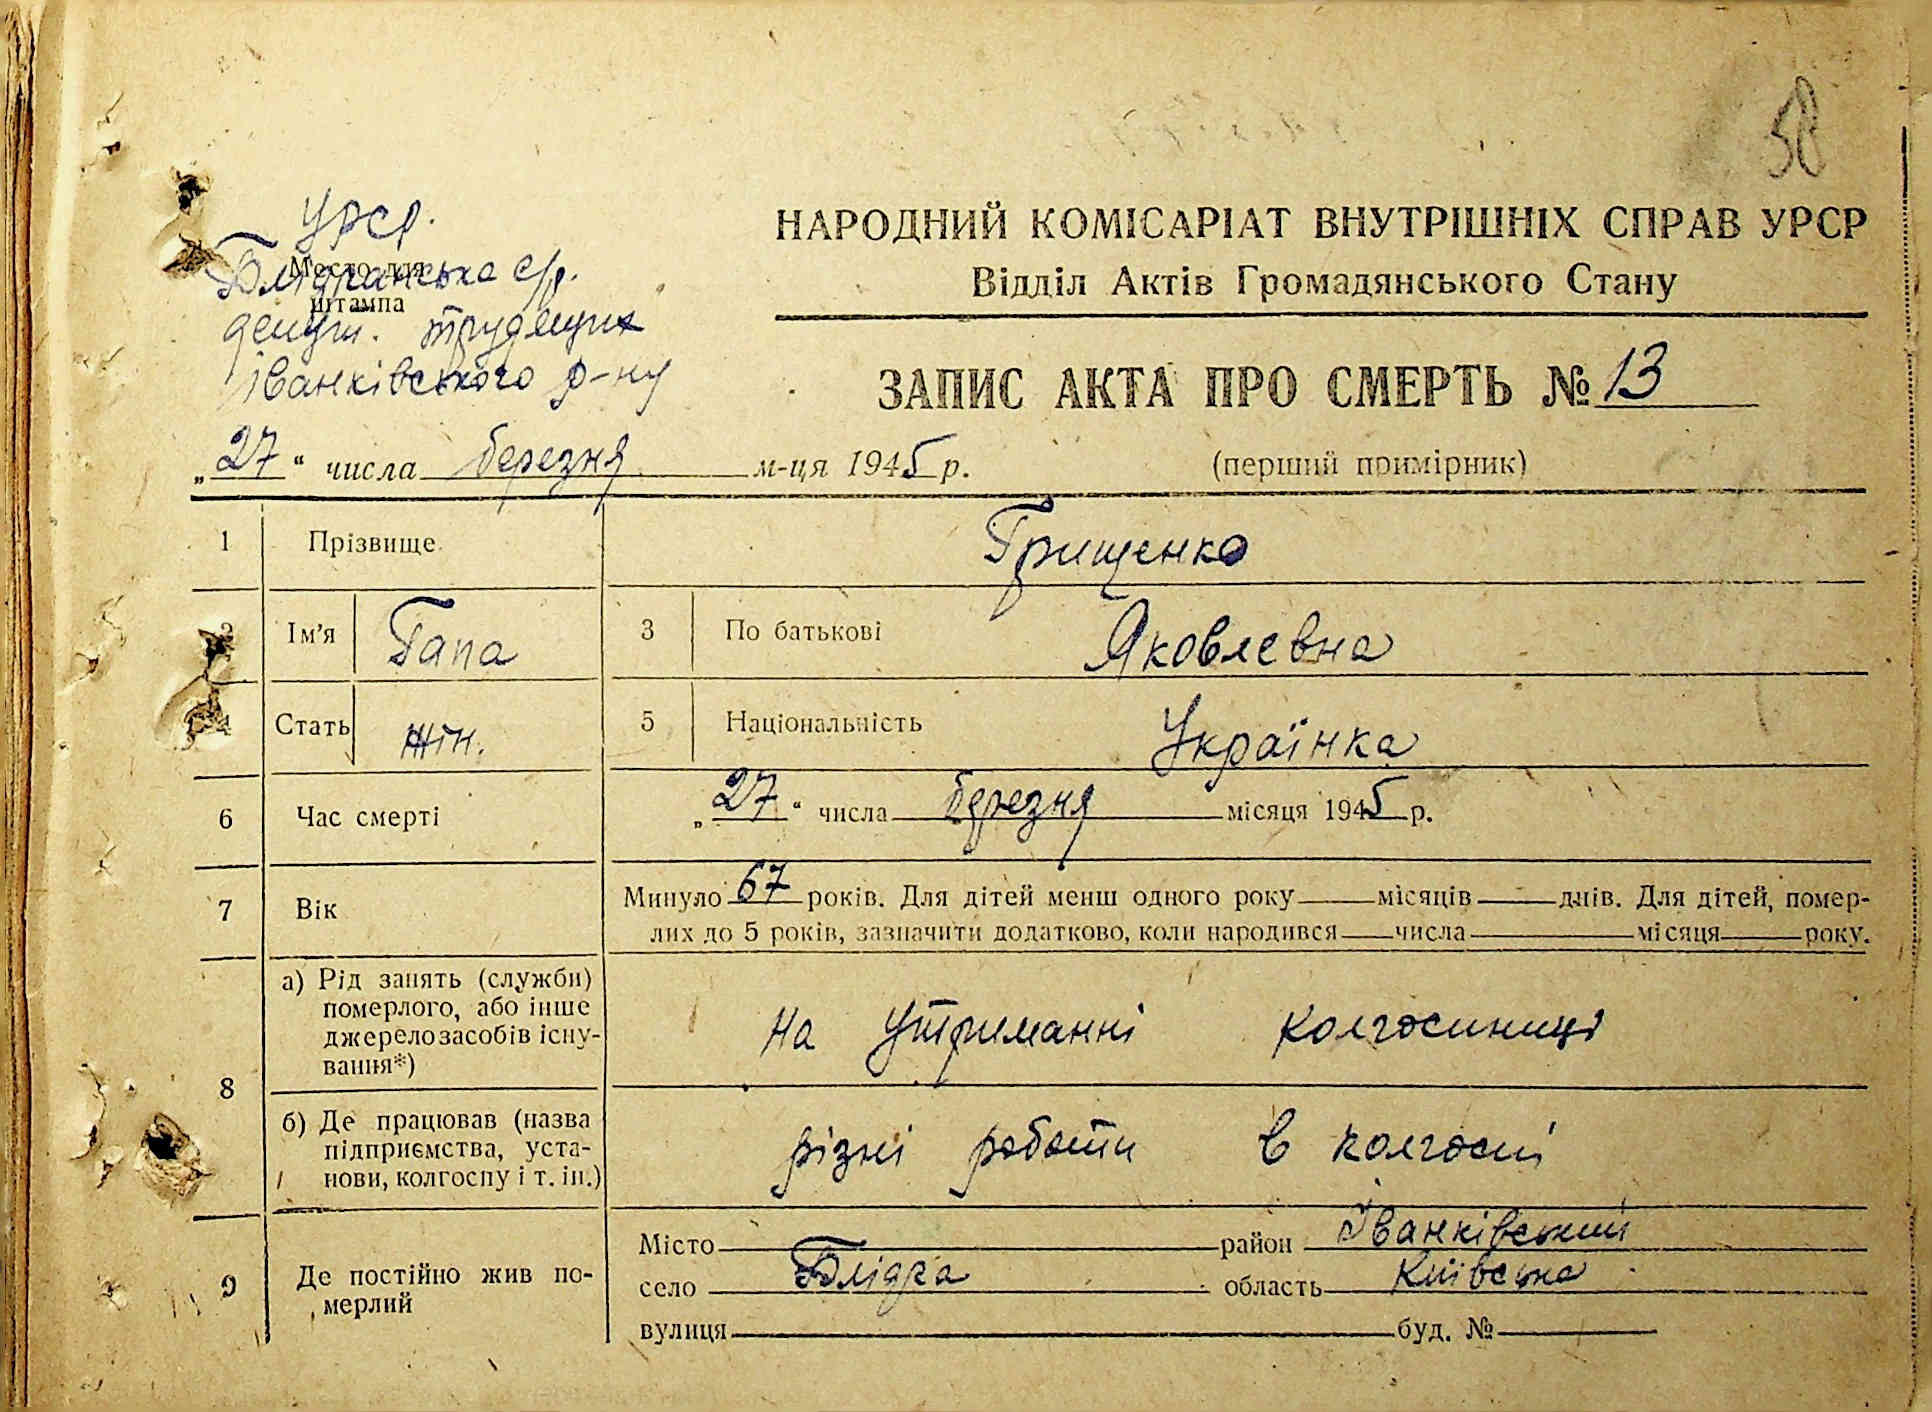 58
УРСР.
Блідчанська с/р.
Место для
штампа
депут. трудящих
Іванківського р-ну
НАРОДНИЙ КОМІСАРІАТ ВНУТРІШНІХ СПРАВ УРСР
Відділ Актів Громадянського Стану
ЗАПИС АКТА ПРО СМЕРТЬ № 13
„27“ числа березня м-ця 1945 р.
(перший примірник)
1 Прізвище Грищенко
2 Ім'я Гапа 3 По батькові Яковлевна
4 Стать жін. 5 Національність Українка
6 Час смерті „27“ числа березня місяця 1945 р.
7 Вік Минуло 67 років. Для дітей менш одного року місяців днів. Для дітей, помер-
лих до 5 років, зазначити додатково, коли народився числа місяця року.
8 а) Рід занять (служби)
померлого, або інше
джерело засобів існу-
вання*)
На утриманні колгоспниці
б) Де працював (назва
підприємства, уста-
нови, колгоспу і т. ін.)
різні роботи в колгоспі
9 Де постійно жив по-
мерлий
Місто район Іванківський
село Блідча область Київська
вулиця буд. №